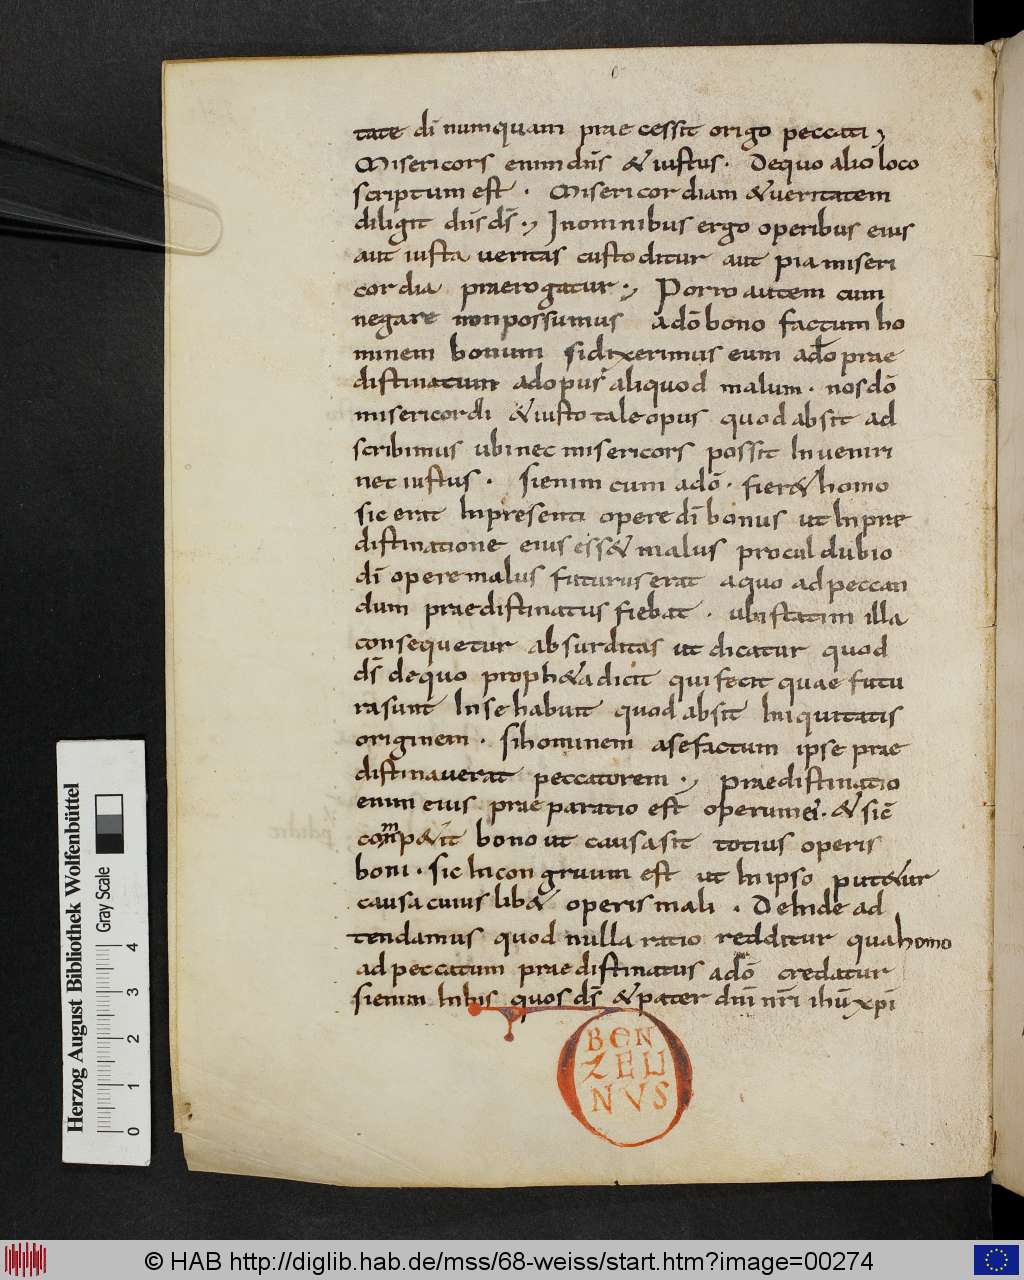 tate dī numquam praecessit origo peccati;
Misericors enim dn̄s & iustus. Dequo alio loco
scriptum est. Misericordiam & veritatem
diligit dn̄s ds̄.; Inomnibus ergo operibus eius
aut iusta veritas custoditur aut pia miseri
cordia praerogatur.; Porro autem cum
negare nonpossumus adō bono factum ho
minem bonum sidixerimus eum adō prae
distinatum adopus aliquod malum. nosdō
misericordi & iusto tale opus quod absit ad
scribimus ubi nec misericors possit Inveniri
nec iustus. sienim cum adō. fier& homo
sic erat Inpresenti opere dī bonus ut Inprae
distinatione eius ess& malus procul dubio
dī opere malus futurus erat aquo adpeccan
dum praedistinatus fiebat. ubi statim illa
consequetur absurditas ut dicatur quod
ds̄ dequo proph&a dicit qui fecit quae futu
rasunt Inse habuit quod absit Iniquitatis
originem. sihominem asefactum ipse prae
distinaverat peccatorem.; praedistinatio
enim eius praeparatio est operum ei. & sic̄
comp&it bono ut causa sit totius operis
boni. sic Incongruum est ut Inipso put&ur
causa cuiuslib& operis mali. Deinde ad
tendamus quod nulla ratio redditur qua homo
adpeccatum praedistinatus adō credatur
sienim Inhis quos ds̄ & pater dn̄i nr̄i ihū xp̄i
BEN
ZELI
NVS
Herzog August Bibliothek Wolfenbüttel
Gray Scale
0 1 2 3 4
© HAB http://diglib.hab.de/mss/68-weiss/start.htm?image=00274